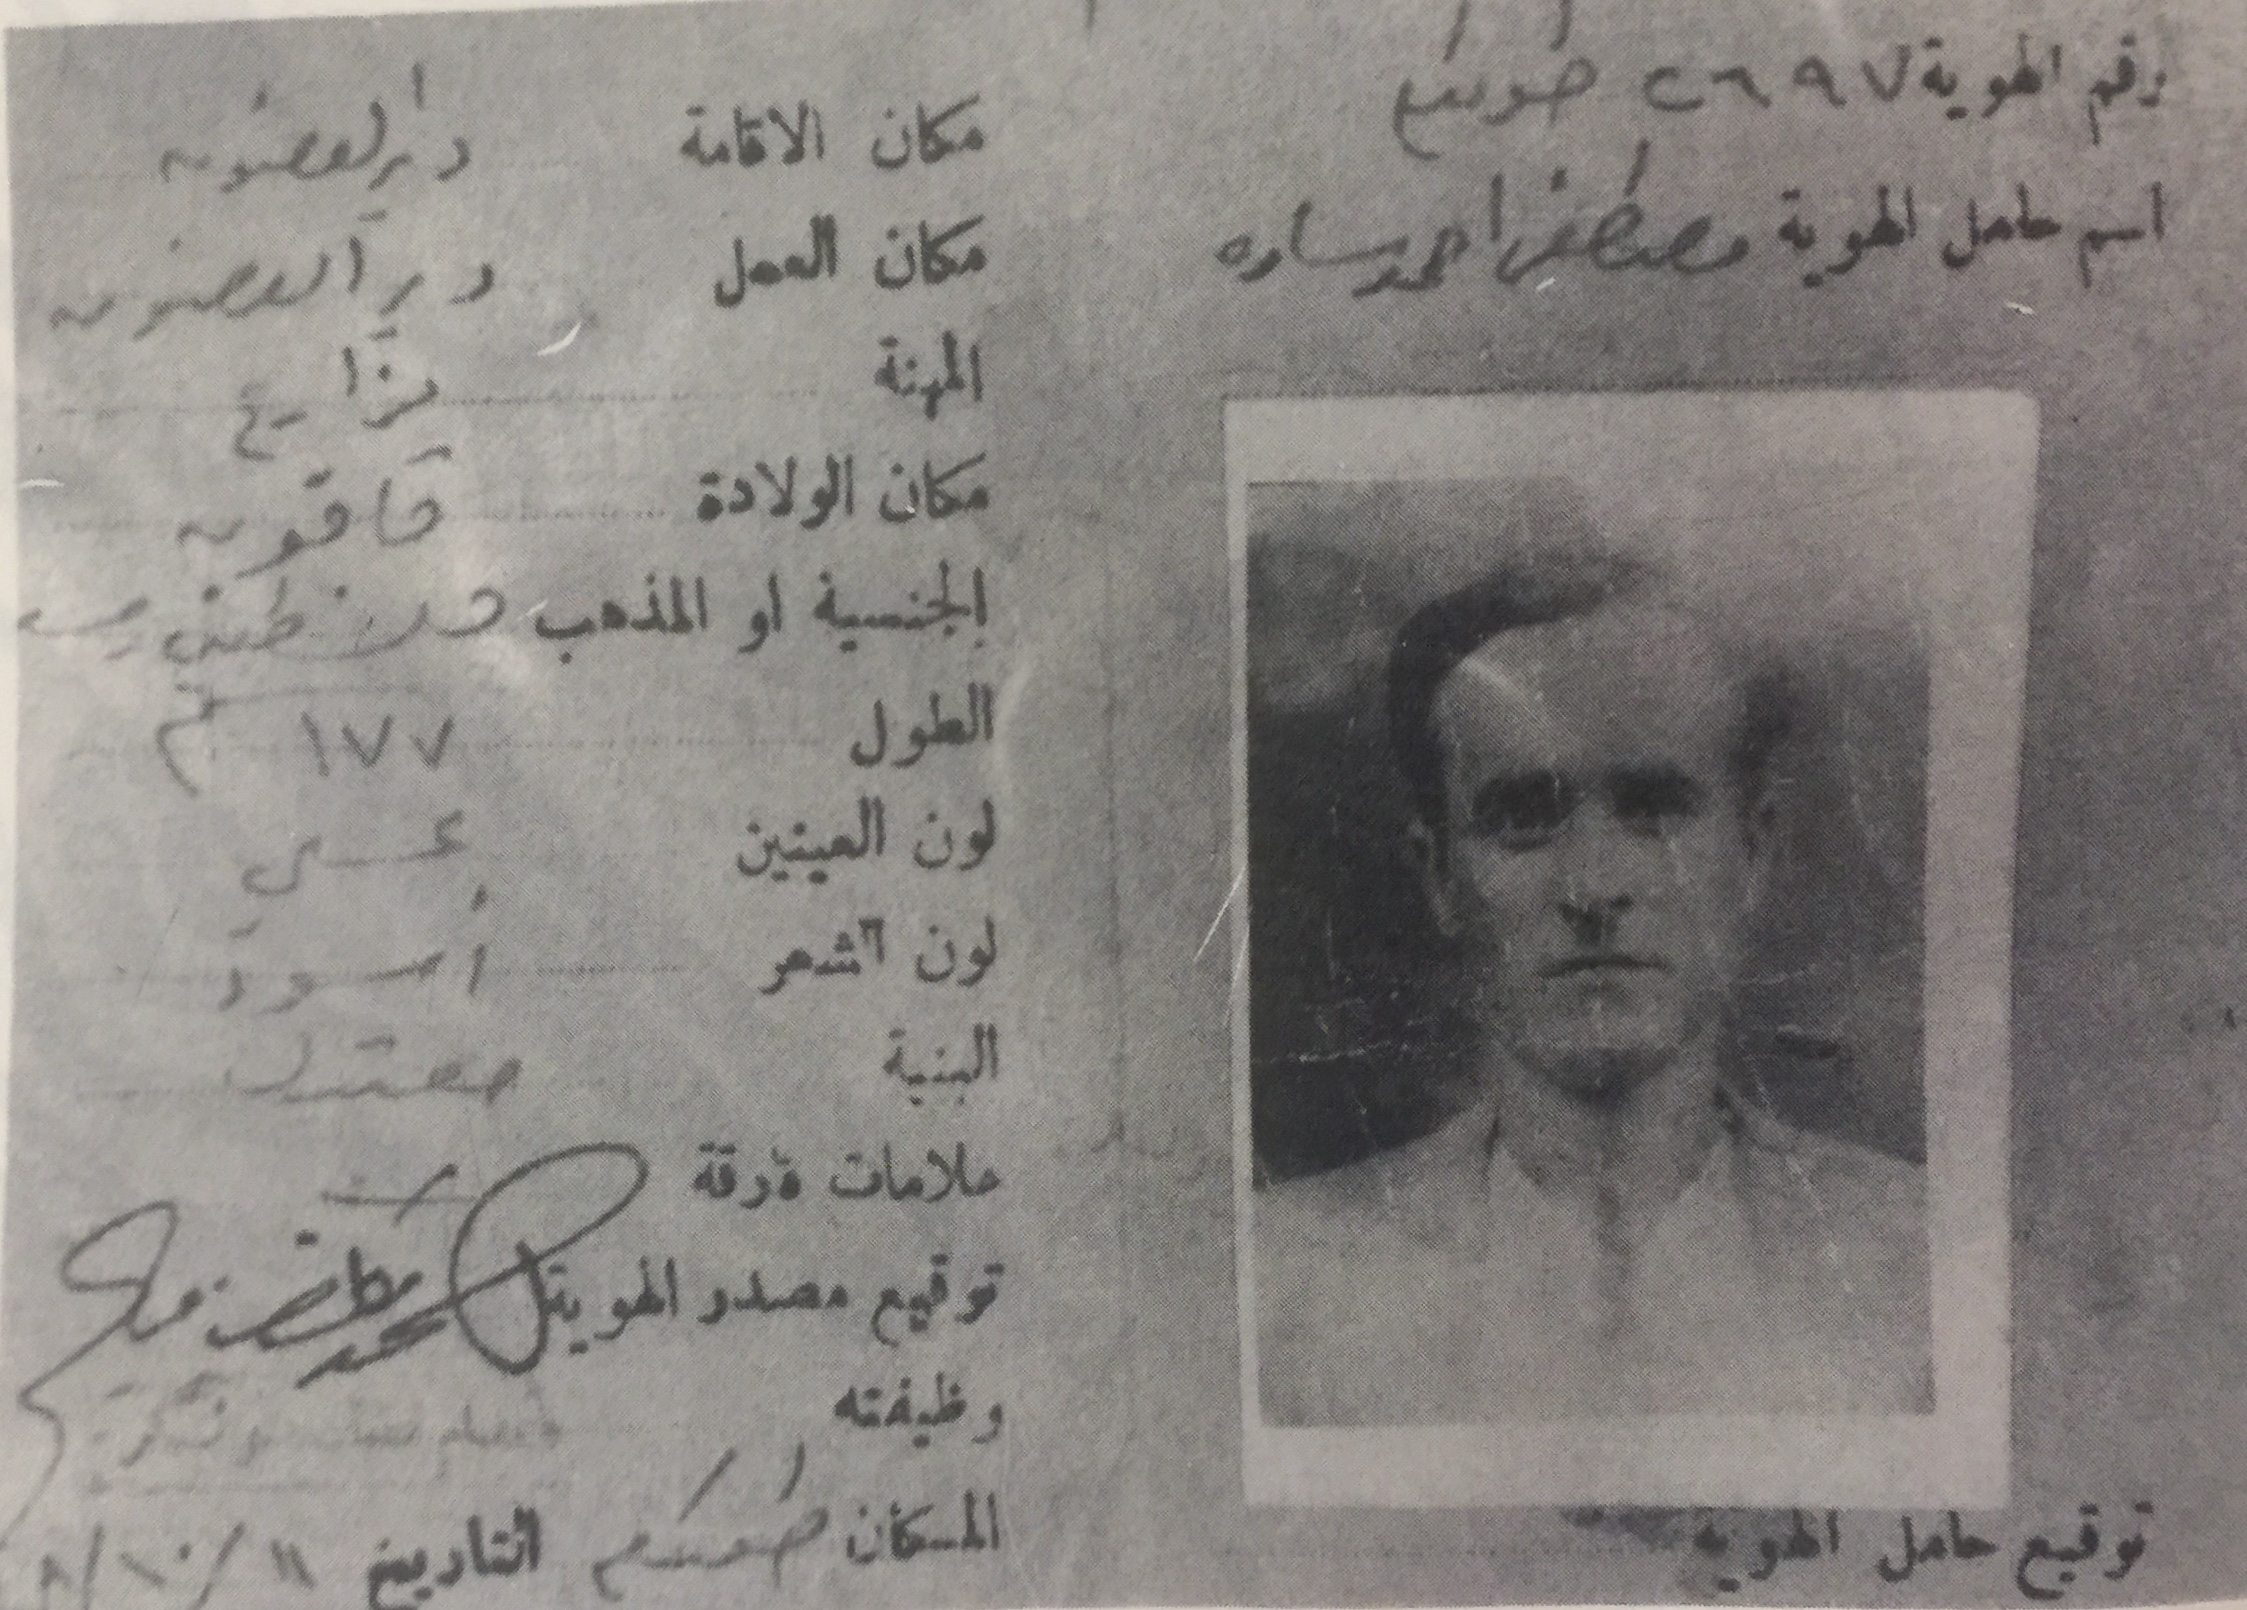 رقم الهوية ٢٦٩٧ طولكرم
اسم حامل الهوية مصطفى احمد ساره
توقيع حامل الهوية
مكان الاقامة دير الغصون
مكان العمل دير الغصون
المهنة مزارع
مكان الولادة قاقون
الجنسية او المذهب فلسطيني
الطول ١٧٧
لون العينين عسلي
لون الشعر اسود
البنية معتدل
علامات فارقة
توقيع مصدر الهوية
وظيفته
المكان طولكرم التاريخ ١١/١٠/